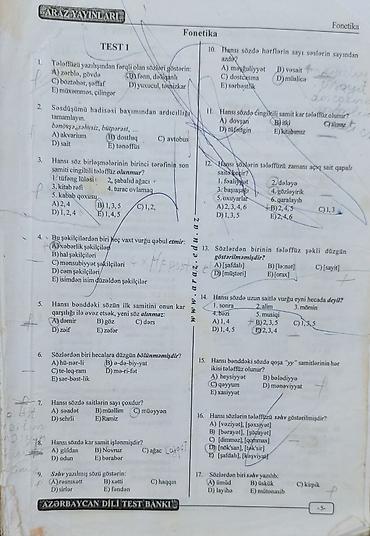 ARAZ YAYINLARI
Fonetika
Fonetika
TEST 1
1. Tələffüzü yazılışından fərqli olan sözləri göstərin:
A) zərblə, gövdə B) fənn, dəlıqanlı
C) böztəbər, şəffaf D) yuxucul, təmizkar
E) müxəmməs, çilingər
2. Səsdüşümü hadisəsi baxımından ardıcıllığı
tamamlayın.
A) akvarium B) dostluq C) avtobus
D) sait E) tənəffüs
3. Hansı söz birləşmələrinin birinci tərəfinin son
samiti cingiltili tələffüz olunmur?
1. tüfəng lüləsi 2. şabalıd ağacı
3. kitab rəfi 4. turac ovlamaq
5. kabab qoxusu
A) 2, 4 B) 1, 3, 5 C) 1, 2,
D) 1, 2, 4 E) 1, 4, 5
4. Bu şəkilçilərdən biri heç vaxt vurğu qəbul etmir:
A) xəbərlik şəkilçiləri
B) hal şəkilçiləri
C) mənsubiyyət şəkilçiləri
D) cəm şəkilçiləri
E) isimdən isim düzəldən şəkilçilər
5. Hansı bənddəki sözün ilk samitini onun kar
qarşılığı ilə əvəz etsək, yeni söz alınmaz:
A) dəmir B) göz C) dərs
D) zəif E) zəfər
6. Sözlərdən biri hecalara düzgün bölünməmişdir?
A) hü-nər-li B) ə-də-biy-yat
C) te-leq-ram D) mə-ri-fət
E) sər-bəst-lik
7. Hansı sözdə samitlərin sayı çoxdur?
A) səadət B) müəllim C) müəyyən
D) şehrli E) Ramiz
8. Hansı sözdə kar samit işlənmişdir?
A) güldan B) Novruz C) ağac
D) odun E) bərabər
9. Səhv yazılmış sözü göstərin:
A) rəsmxətt B) xətti C) haqqın
D) sirlər E) fəndən
10. Hansı sözdə hərflərin sayı səslərin sayından
azdır?
A) məşğuliyyət B) vəsait
C) dostcasına D) müalicə
E) sərbəstlik
11. Hansı sözdə cingiltili samit kar tələffüz olunur?
A) dovşan B) itki
D) tüfəngin E) kitabımız
12. Hansı sözlərin tələffüzü zamanı açıq sait qapalı
saitə keçir?
1. fəaliyyət 2. dələyə
3. başaşağı 4. gözləyirik
5. oxuyurlar 6. qaralayıb
A) 2, 3, 4, 6 B) 2, 4, 5 C) 1, 3
D) 1, 3, 5 E) 2, 4, 6
13. Sözlərdən birinin tələffüz şəkli düzgün
göstərilməmişdir?
14. Hansı sözdə uzun saitlə vurğu eyni hecada deyil?
1. sonra 2. alim 3. mömin
4. bəzi 5. musiqi
A) 1, 4 B) 2, 3, 5 C) 1, 3, 5
D) 1, 4, 5 E) 2, 3, 4
15. Hansı bənddəki sözdə qoşa "yy" samitlərinin hər
ikisi tələffüz olunur?
A) heysiyyət B) bələdiyyə
C) qəyyum D) mənəviyyat
E) vəziyyət
16. Hansı sözlərin tələffüzü səhv göstərilmişdir?
17. Sözlərdən biri səhv yazılıb:
A) ümüd B) üskük C) küpik
D) layihə E) mütənasib
www.araz.edu.az
AZƏRBAYCAN DİLİ TEST BANKI
-5-